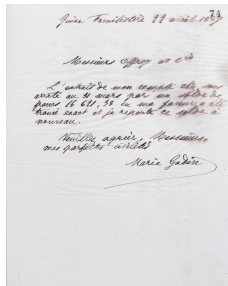 74
Guise Familistère 22 avril 18
Messieurs Offroy et Cie
L'extrait de mon compte chez vous
arrêté au 31 mars par un solde de
francs 16 691,38 en ma faveur a été
trouvé exact et je reporte ce solde à
nouveau.
Veuillez agréer, Messieurs,
mes parfaites civilités
Marie Godin